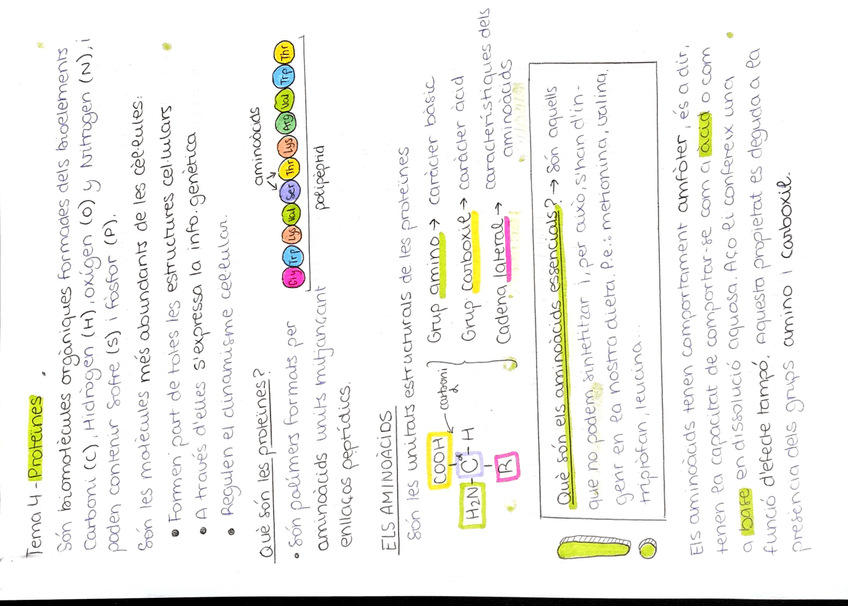 Tema 4 - Proteïnes
Són biomolècules orgàniques formades dels bioelements
Carboni (C), Hidrògen (H), oxígen (O) y Nitrogen (N), i
poden contenir sofre (S) i fòsfor (P).
Són les molècules més abundants de les cèl·lules:
• Formen part de totes les estructures cel·lulars
• A través d'elles s'expressa la info. genètica
• Regulen el dinamisme cel·lular.
Què són les proteïnes?
• Són polímers formats per
aminoàcids units mitjançant
enllaços peptídics.
aminoàcids
Gly Trp Lys Val Ser Thr Lys Arg Val Trp Thr
polipèptid
ELS AMINOÀCIDS
Són les unitats estructurals de les proteïnes
COOH
carboni α
H2N - C - H
R
Grup amino → caràcter bàsic
Grup carboxil → caràcter àcid
Cadena lateral → característiques dels
aminoàcids
Què són els aminoàcids essencials? → Són aquells
que no podem sintetitzar i, per això, s'han d'in-
gerir en la nostra dieta. P.e.: metionina, valina,
triptòfan, leucina...
Els aminoàcids tenen comportament amfòter, és a dir,
tenen la capacitat de comportar-se com a àcid o com
a base en dissolució aquosa. Açò li confereix una
funció d'efecte tampó. Aquesta propietat es deguda a la
presència dels grups amino i carboxil.